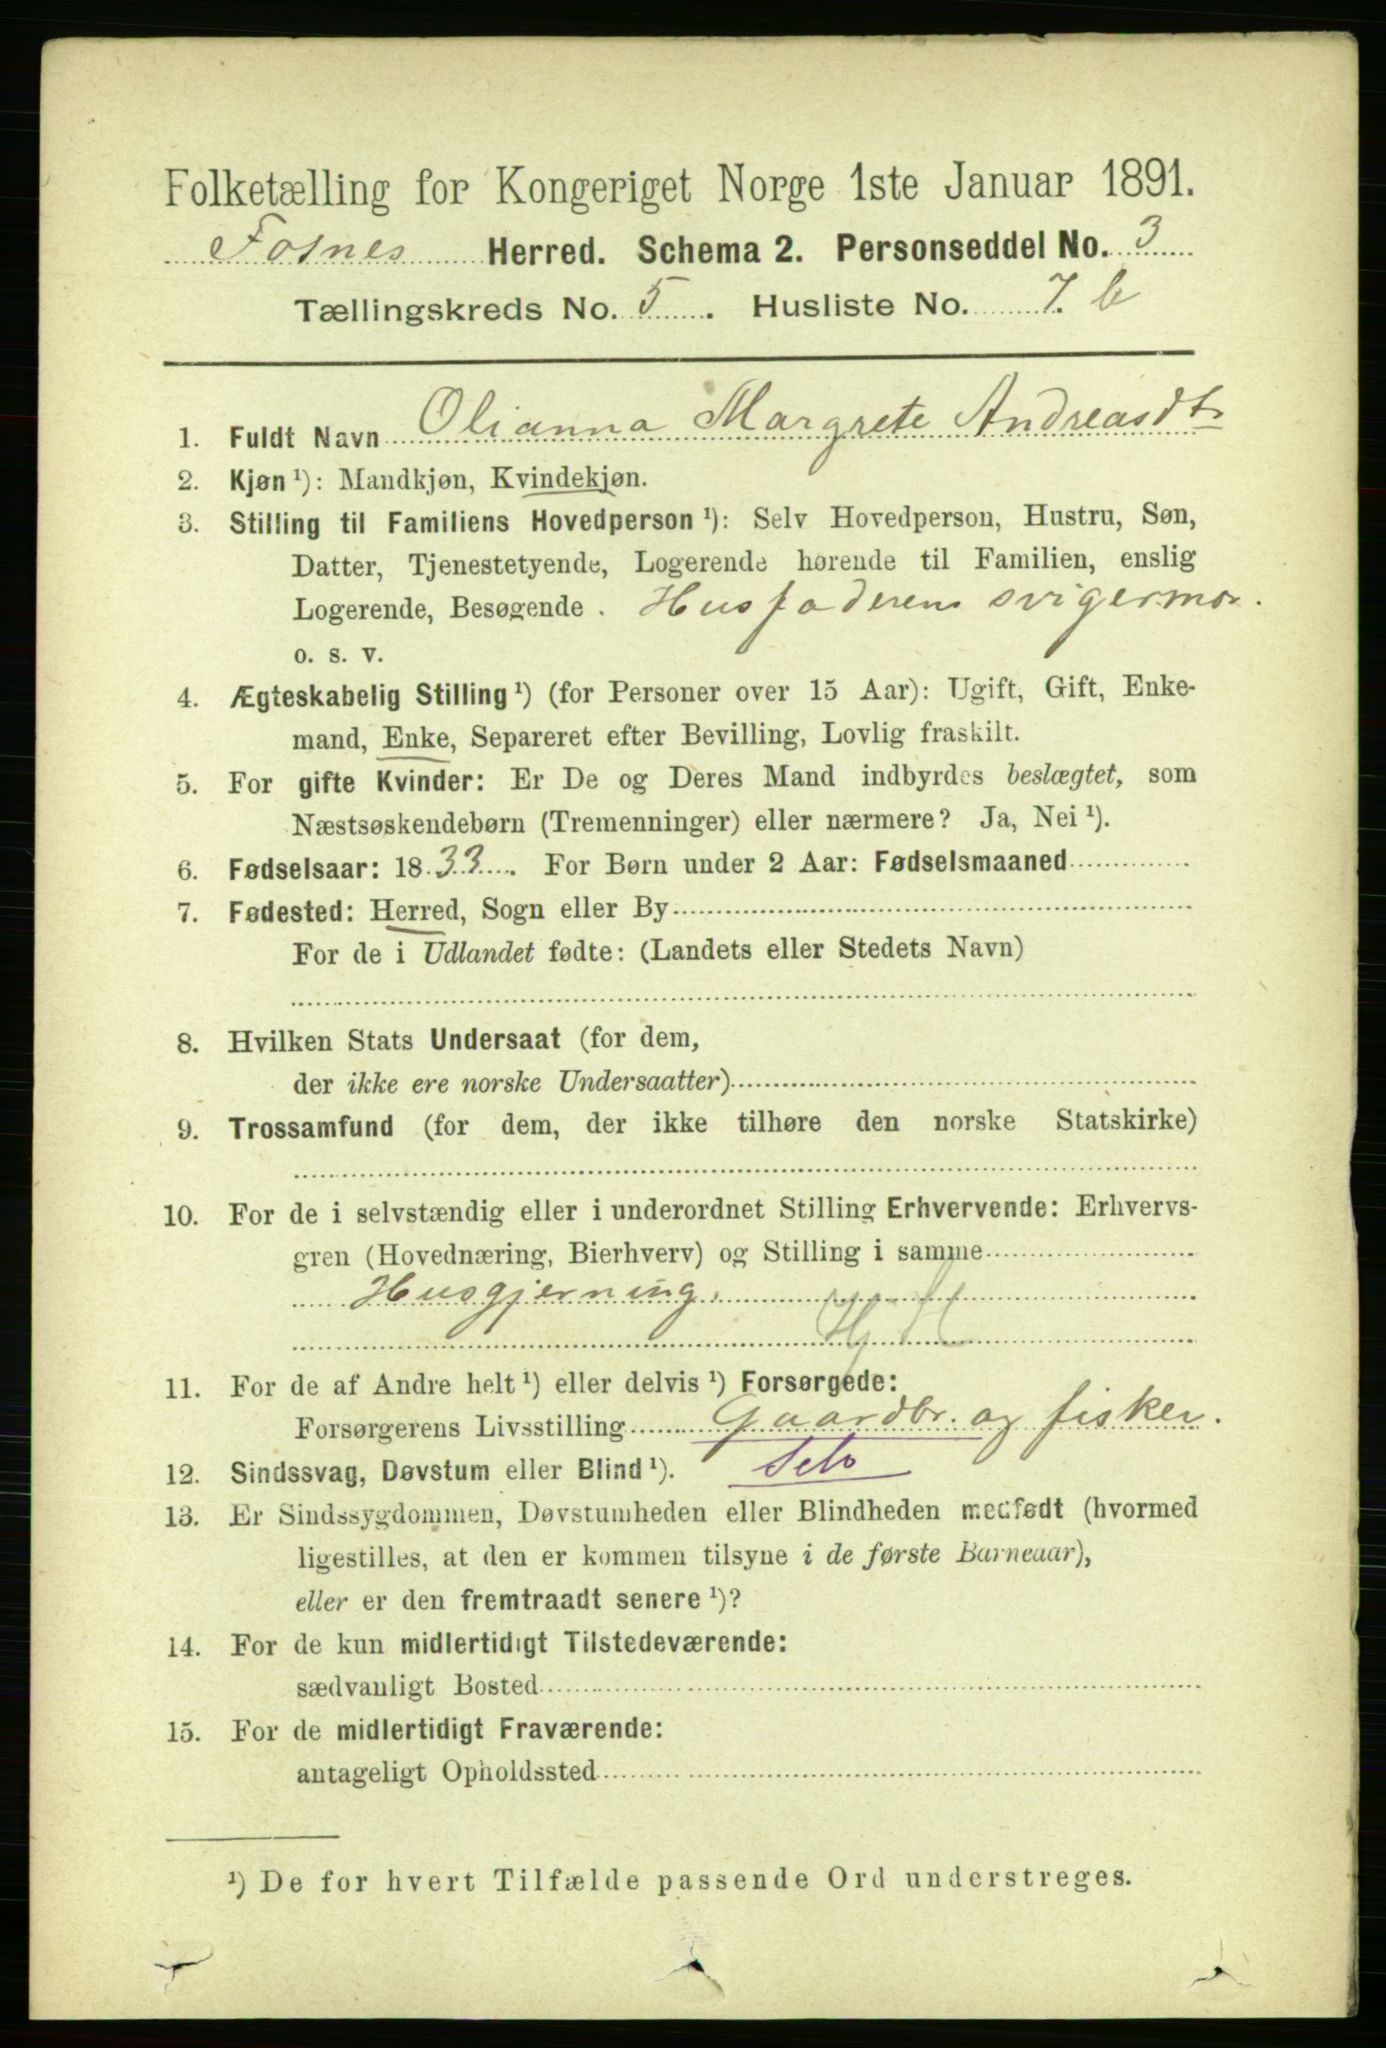 Folketælling for Kongeriget Norge 1ste Januar 1891.
Fosnes Herred. Schema 2. Personseddel No. 3
Tællingskreds No. 5. Husliste No. 7. b
1. Fuldt Navn Olianna Margrete Andreasdtr
2. Kjøn ¹): Mandkjøn, Kvindekjøn.
3. Stilling til Familiens Hovedperson ¹): Selv Hovedperson, Hustru, Søn,
Datter, Tjenestetyende, Logerende hørende til Familien, enslig
Logerende, Besøgende . Husfaderens svigermor.
o. s. v.
4. Ægteskabelig Stilling ¹) (for Personer over 15 Aar): Ugift, Gift, Enke-
mand, Enke, Separeret efter Bevilling, Lovlig fraskilt.
5. For gifte Kvinder: Er De og Deres Mand indbyrdes beslægtet, som
Næstsøskendebørn (Tremenninger) eller nærmere? Ja, Nei ¹).
6. Fødselsaar: 1833. For Børn under 2 Aar: Fødselsmaaned
7. Fødested: Herred, Sogn eller By
For de i Udlandet fødte: (Landets eller Stedets Navn)
8. Hvilken Stats Undersaat (for dem,
der ikke ere norske Undersaatter)
9. Trossamfund (for dem, der ikke tilhøre den norske Statskirke)
10. For de i selvstændig eller i underordnet Stilling Erhvervende: Erhvervs-
gren (Hovednæring, Bierhverv) og Stilling i samme
Husgjerning.
11. For de af Andre helt ¹) eller delvis ¹) Forsørgede:
Forsørgerens Livsstilling Gaardbr. og fisker.
12. Sindssvag, Døvstum eller Blind ¹).
13. Er Sindssygdommen, Døvstumheden eller Blindheden medfødt (hvormed
ligestilles, at den er kommen tilsyne i de første Barneaar),
eller er den fremtraadt senere ¹)?
14. For de kun midlertidigt Tilstedeværende:
sædvanligt Bosted
15. For de midlertidigt Fraværende:
antageligt Opholdssted
¹) De for hvert Tilfælde passende Ord understreges.